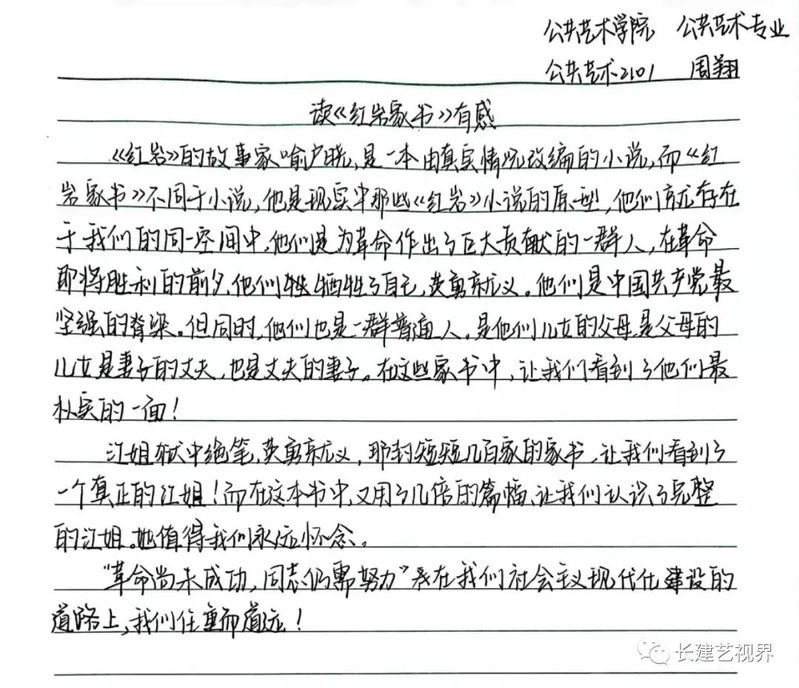 公共艺术学院 公共艺术专业
公共艺术2101 周翔
读《红岩家书》有感
《红岩》的故事家喻户晓,是一本由真实情况改编的小说,而《红
岩家书》不同于小说,他是现实中那些《红岩》小说的原型,他们就存在
于我们的同一空间中,他们是为革命作出了巨大贡献的一群人,在革命
即将胜利的前夕,他们牺牲了自己,英勇就义。他们是中国共产党最
坚强的脊梁。但同时,他们也是一群普通人。是他们儿女的父母,是父母的
儿女是妻子的丈夫,也是丈夫的妻子。在这些家书中,让我们看到了他们最
朴实的一面!
江姐狱中绝笔,英勇就义,那封短短几百家的家书,让我们看到了
一个真正的江姐!而在这本书中,又用了几倍的篇幅,让我们认识了完整
的江姐。她值得我们永远怀念。
“革命尚未成功,同志仍需努力”在我们社会主义现代化建设的
道路上,我们任重而道远!
长建艺视界